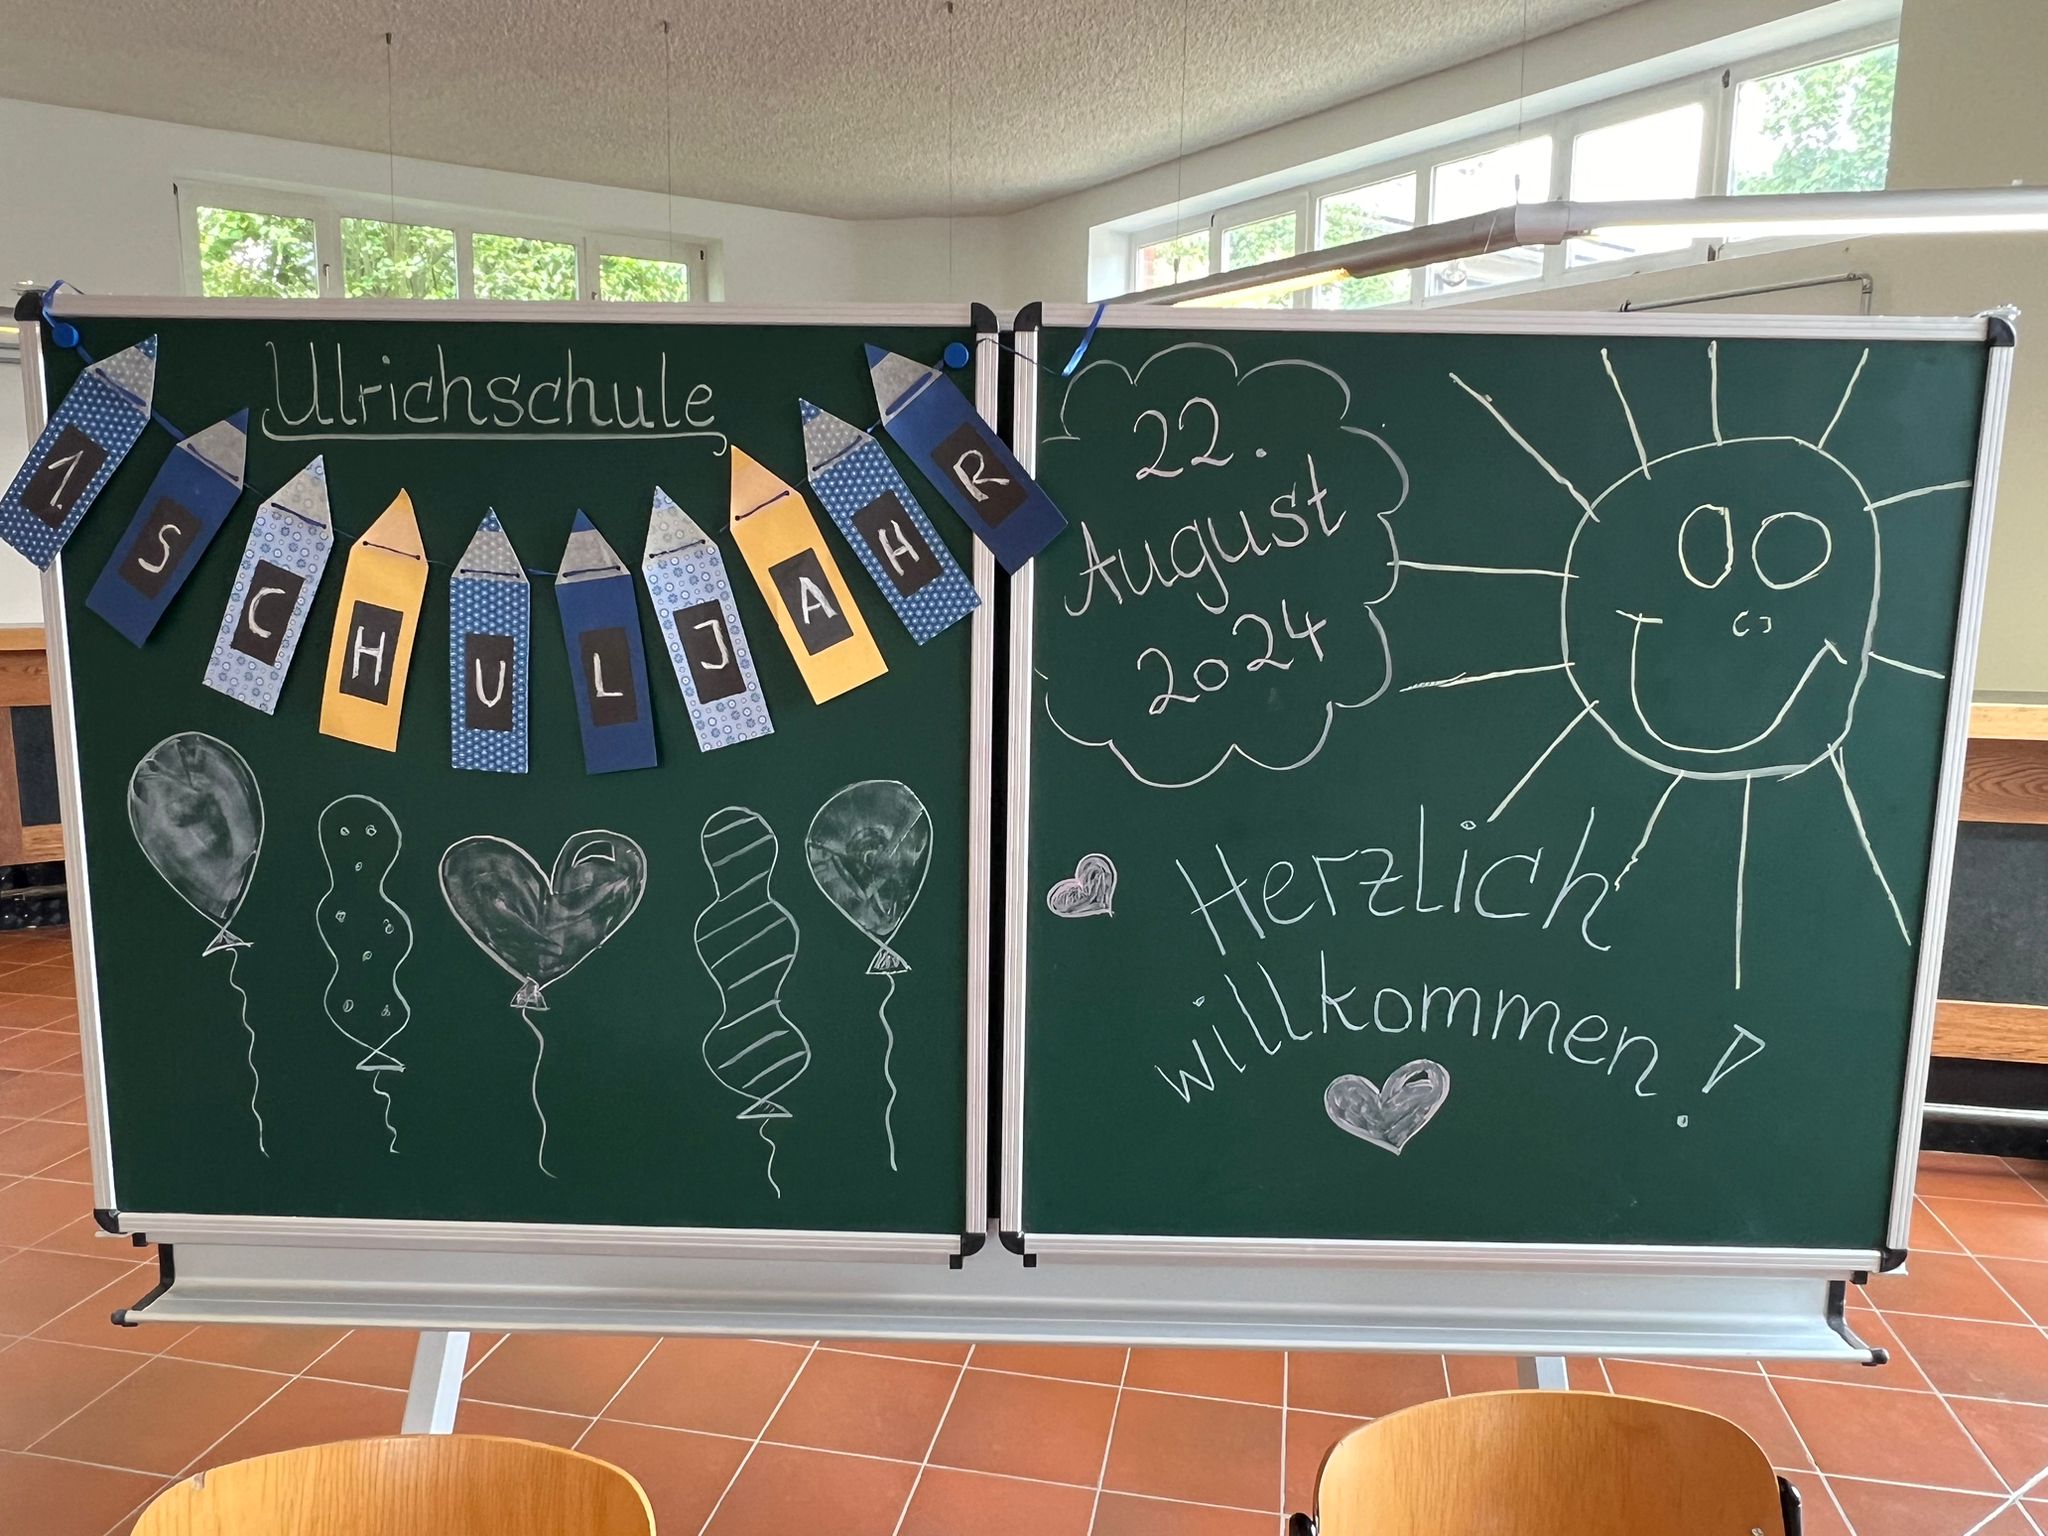 Ulrichschule
1. SCHULJAHR
22.
August
2024
Herzlich
willkommen!